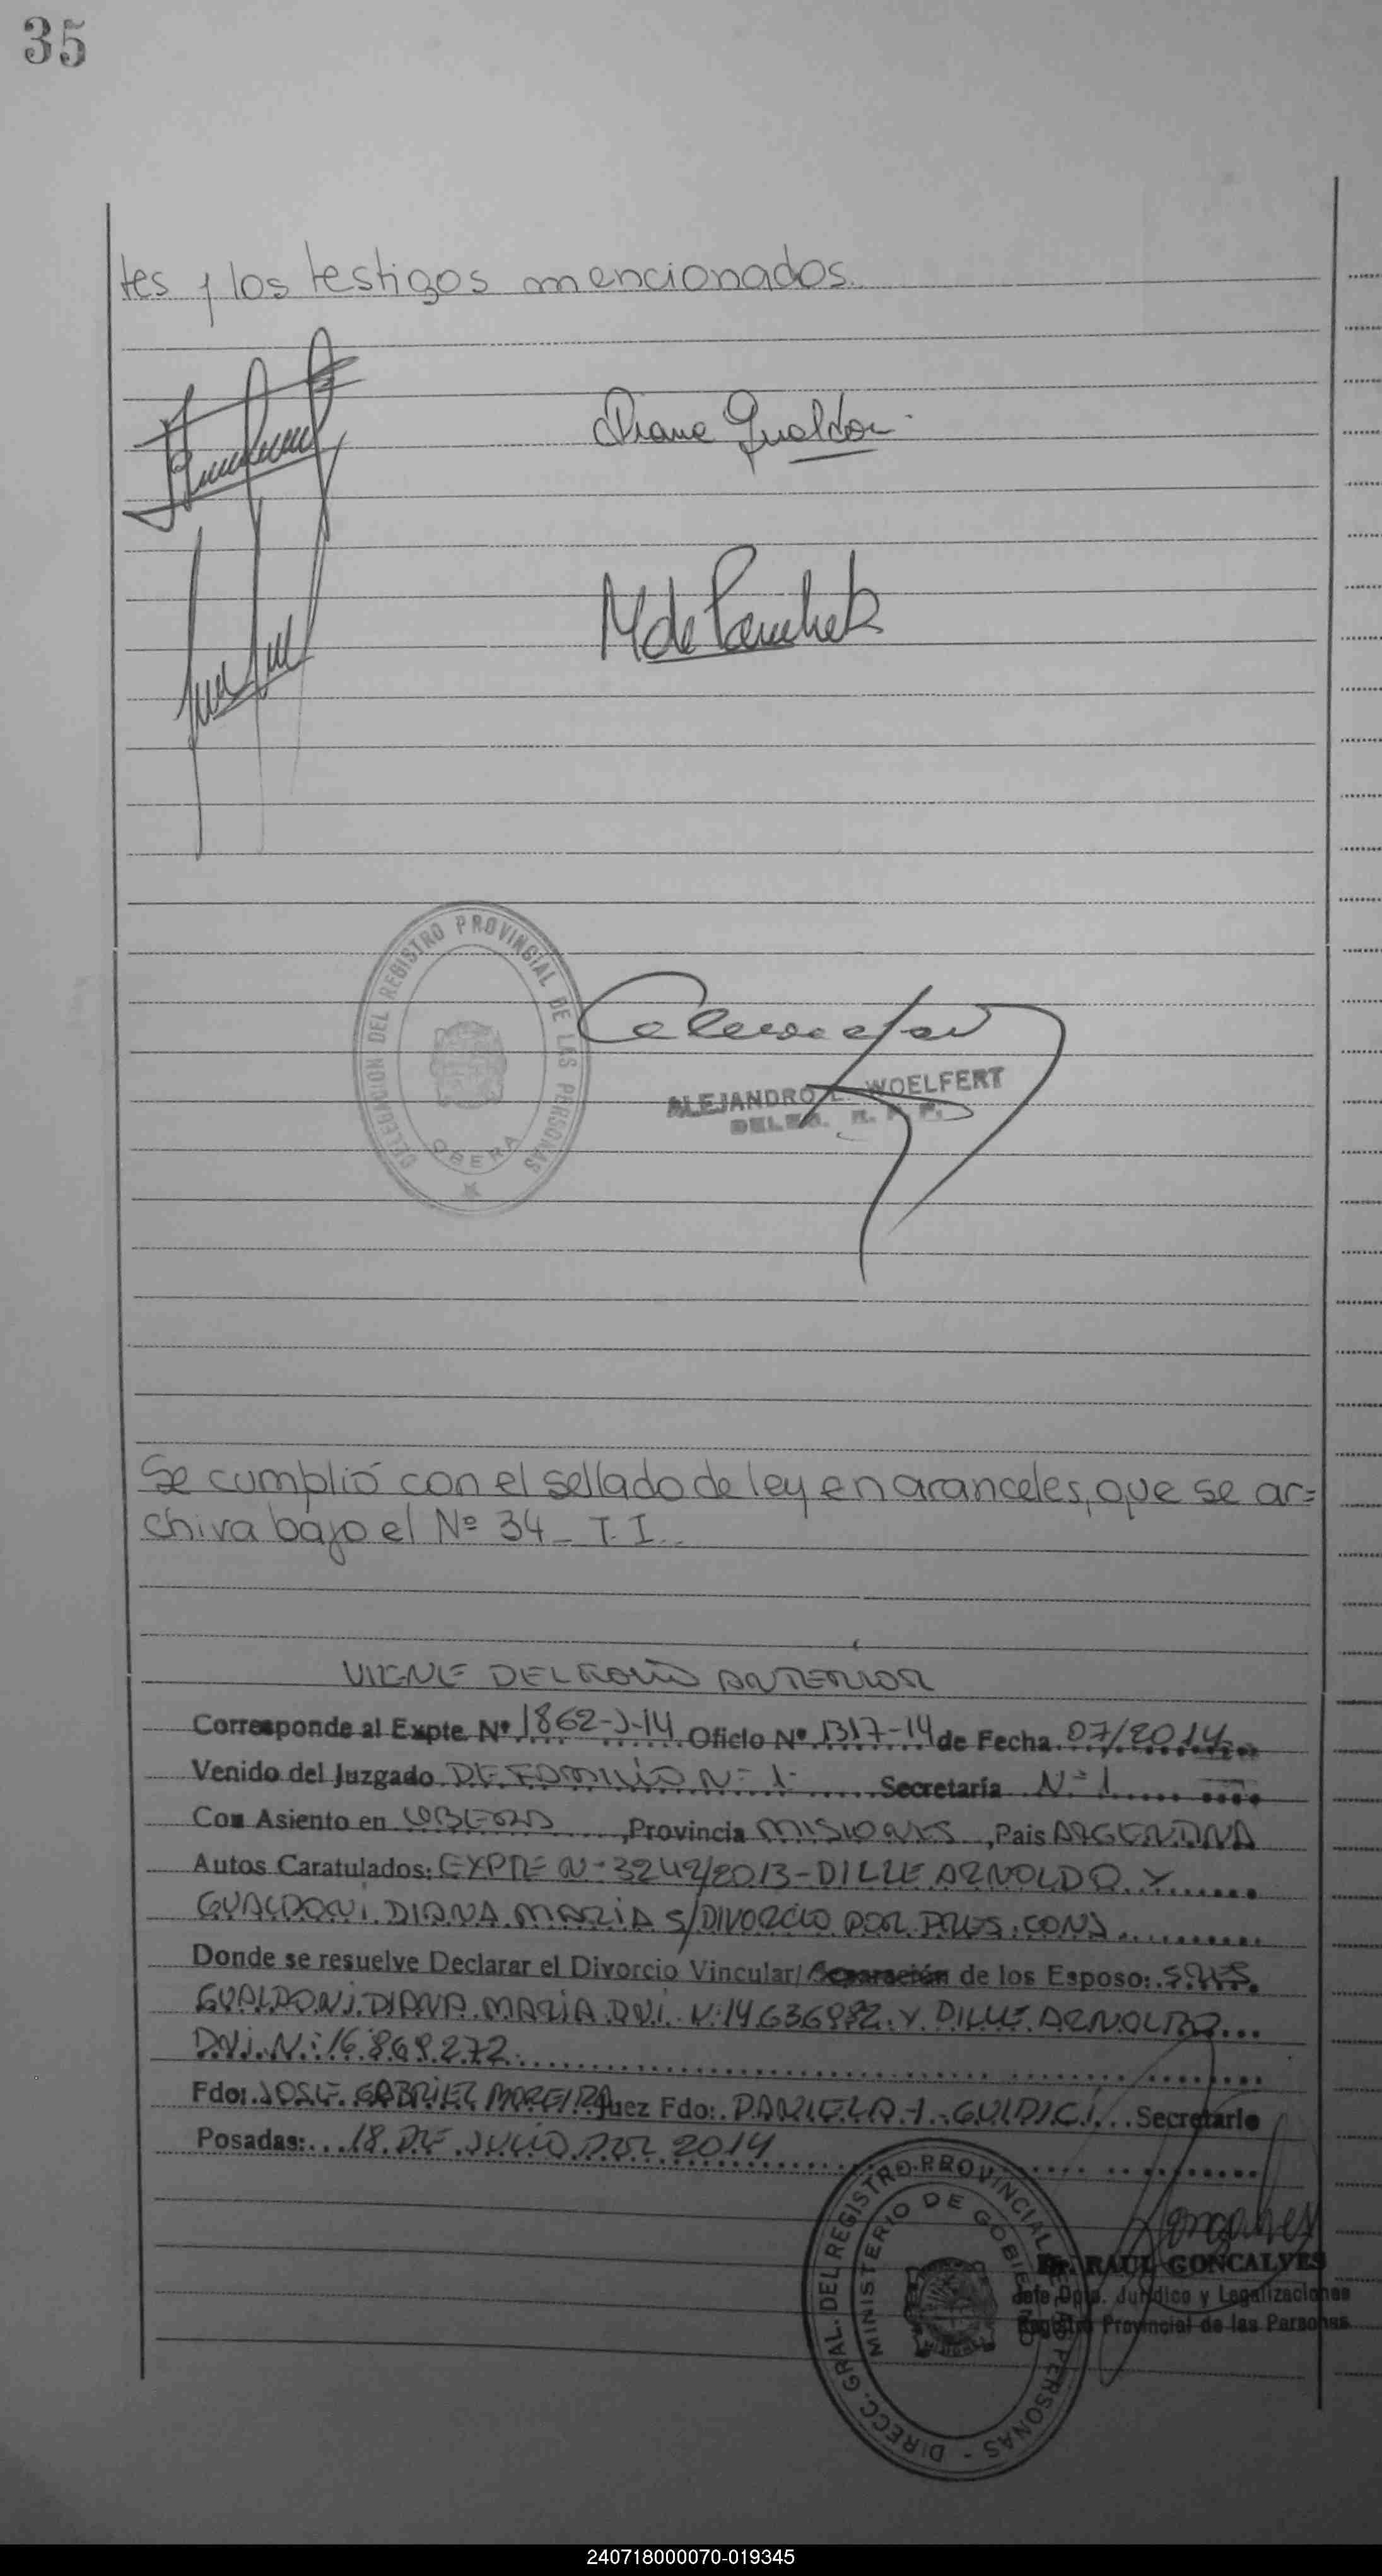 35
tes y los testigos mencionados.
Diana Gualdon
M de
DELEGACION DEL REGISTRO PROVINCIAL DE LAS PERSONAS
OBERA
ALEJANDRO L. WOELFERT
DELEG. R. P. P.
Se cumplió con el sellado de ley en aranceles, que se ar=
chiva bajo el Nº 34 - T. I.
VIENE DEL FOLIO ANTERIOR
Corresponde al Expte. Nº 1862-J-14 Oficio Nº 1317-14 de Fecha 07/2014
Venido del Juzgado DE FAMILIA Nº 1 Secretaría Nº 1
Con Asiento en OBERA, Provincia MISIONES, Pais ARGENTINA
Autos Caratulados: EXPTE Nº 3242/2013 - DILLE ARNOLDO Y
GUALDONI DIANA MARIA S/DIVORCIO POR PRES. CONJ.
Donde se resuelve Declarar el Divorcio Vincular/Separación de los Esposo: SRES.
GUALDONI DIANA MARIA D.N.i. Nº 14.636.982 Y DILLE ARNOLDO
D.N.i. Nº 16.869.272
Fdo: JOSE GABRIEL MOREIRA Juez Fdo: DANIELA I. GUIDICI Secretario
Posadas: 18 DE JULIO DEL 2014
DIRECC. GRAL. DEL REGISTRO PROVINCIAL DE LAS PERSONAS -
MINISTERIO DE GOBIERNO
Dr. RAUL GONCALVES
Jefe Dpto. Jurídico y Legalizaciones
Registro Provincial de las Personas
240718000070-019345